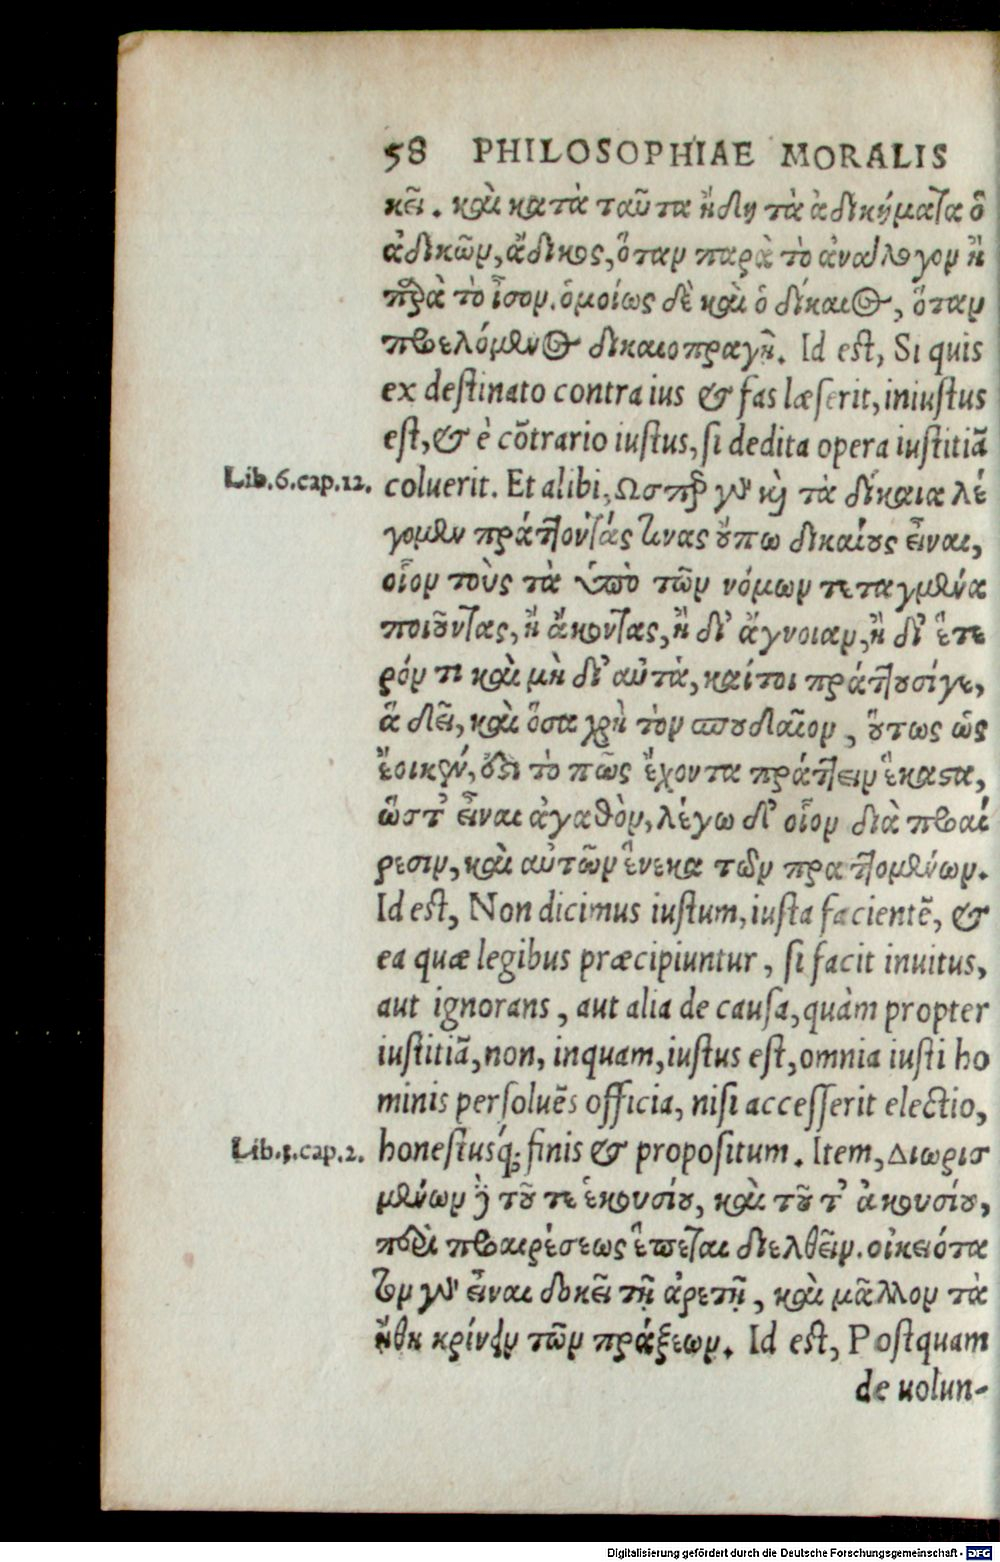 58 PHILOSOPHIAE MORALIS
κεῖ. καὶ κατὰ ταῦτα ἤδη τὰ ἀδικήματα ὁ
ἀδικῶν, ἄδικος, ὅταν παρὰ τὸ ἀνάλογον ἢ
παρὰ τὸ ἴσον. ὁμοίως δὲ καὶ ὁ δίκαιος, ὅταν
προελόμενος δικαιοπραγῇ. Id est, Si quis
ex destinato contra ius & fas læserit, iniustus
est, & è cõtrario iustus, si dedita opera iustitiã
Lib.6.cap.12. coluerit. Et alibi, Ωσπερ γὰρ καὶ τὰ δίκαια λέ
γομεν πράττοντάς τινας οὔπω δικαίους εἶναι,
οἷον τοὺς τὰ ὑπὸ τῶν νόμων τεταγμένα
ποιοῦντας, ἢ ἄκοντας, ἢ δι’ ἄγνοιαν, ἢ δι’ ἕτε
ρόν τι καὶ μὴ δι’ αὐτὰ, καίτοι πράττουσίγε,
ἃ δεῖ, καὶ ὅσα χρὴ τὸν σπουδαῖον, οὕτως ὡς
ἔοικεν, ὅτι τὸ πῶς ἔχοντα πράττειν ἕκαστα,
ὥστ’ εἶναι ἀγαθὸν, λέγω δ’ οἷον διὰ προαί
ρεσιν, καὶ αὐτῶν ἕνεκα τῶν πραττομένων.
Id est, Non dicimus iustum, iusta facientẽ, &
ea quæ legibus præcipiuntur, si facit inuitus,
aut ignorans, aut alia de causa, quàm propter
iustitiã, non, inquam, iustus est, omnia iusti ho
minis persoluẽs officia, nisi accesserit electio,
Lib.3.cap.2. honestusq́; finis & propositum. Item, Διωρισ
μένων δὲ τοῦ τε ἑκουσίου, καὶ τοῦ τ’ ἀκουσίου,
περὶ προαιρέσεως ἕπεται διελθεῖν. οἰκειότα
τον γὰρ εἶναι δοκεῖ τῇ ἀρετῇ, καὶ μᾶλλον τὰ
ἤθη κρίνειν τῶν πράξεων. Id est, Postquam
de uolun-
Digitalisierung gefördert durch die Deutsche Forschungsgemeinschaft - DFG